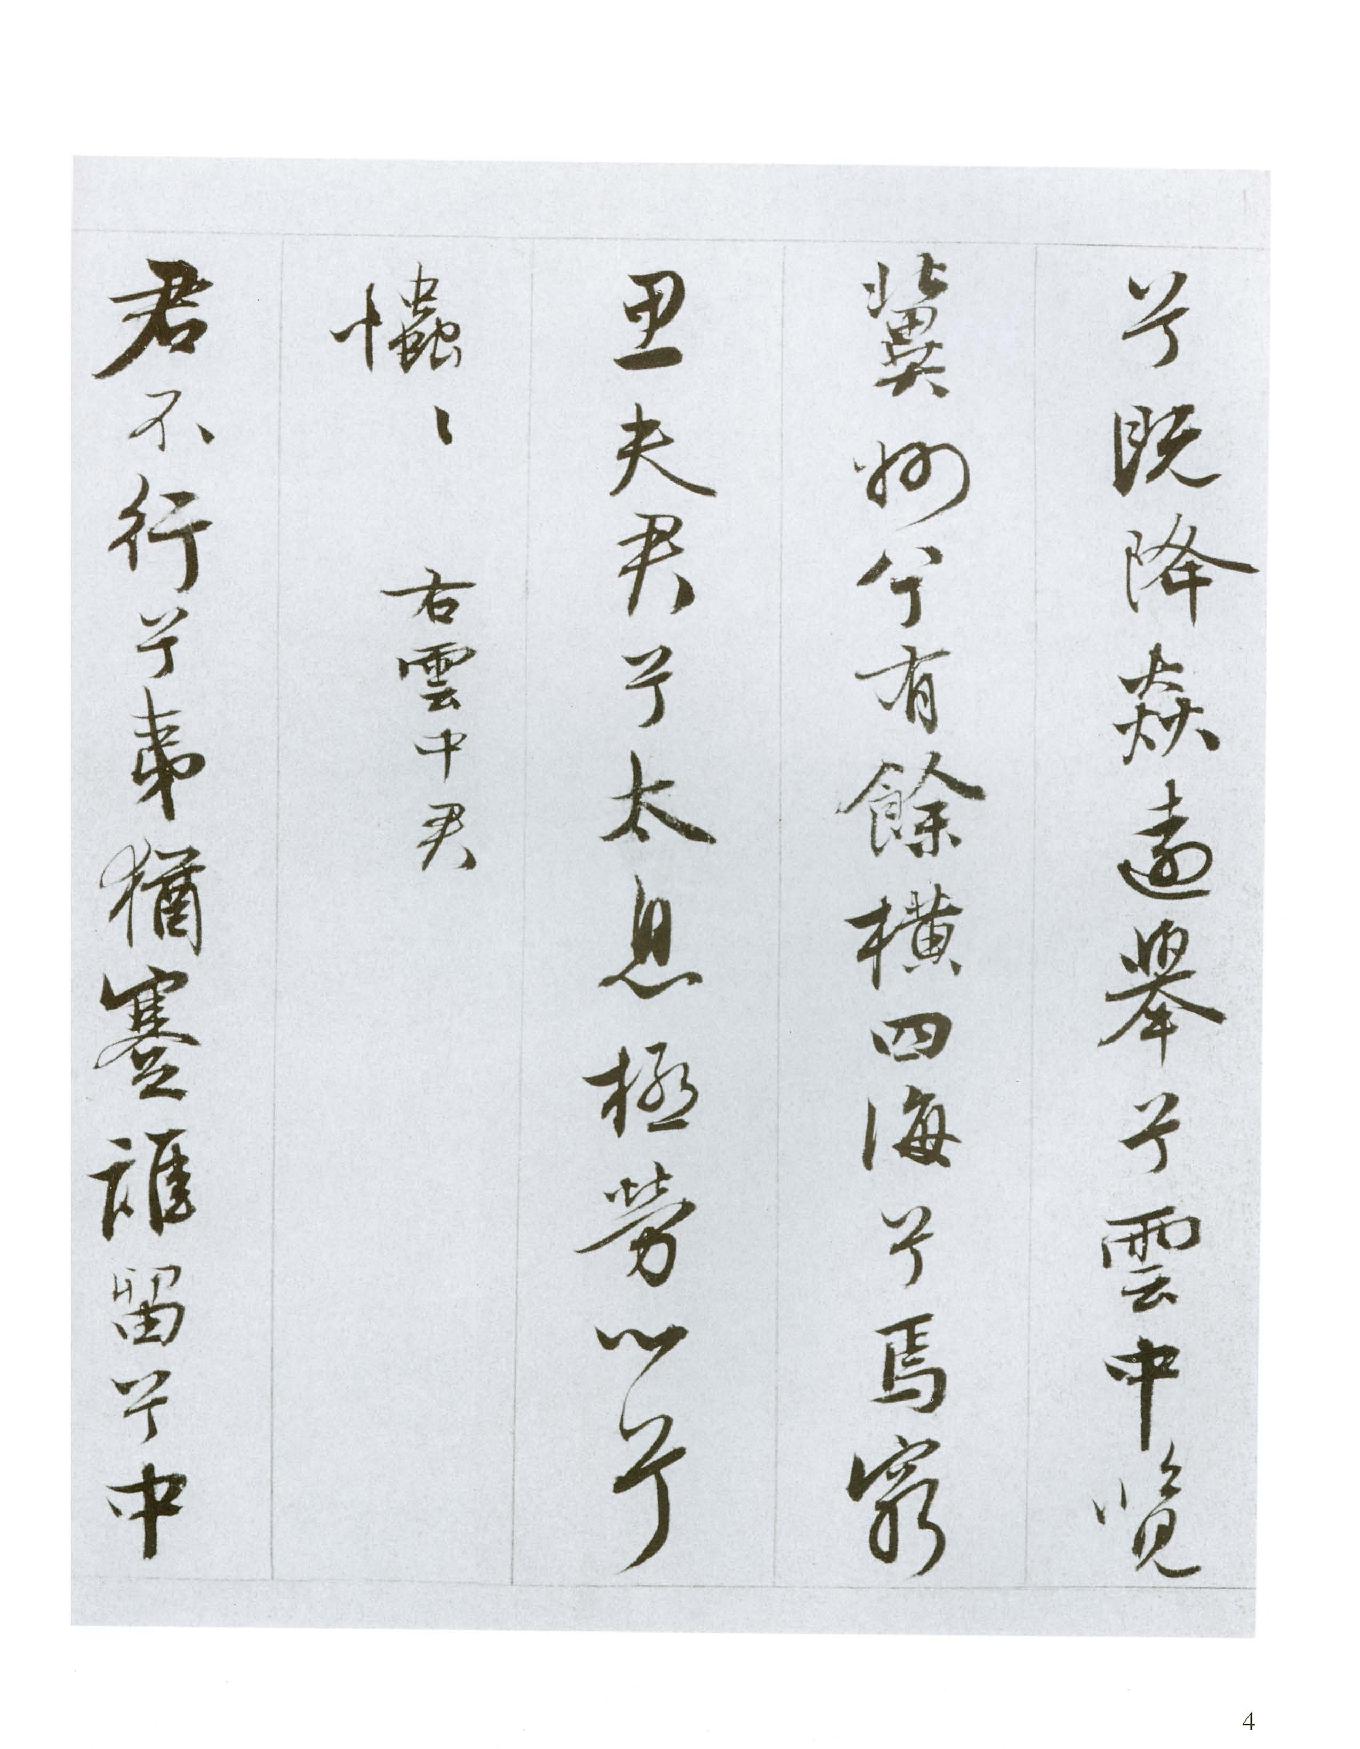 兮既降猋遠舉兮雲中覽
冀州兮有餘橫四海兮焉窮
思夫君兮太息極勞心兮
忡〻 右雲中君
君不行兮夷猶蹇誰留兮中
4